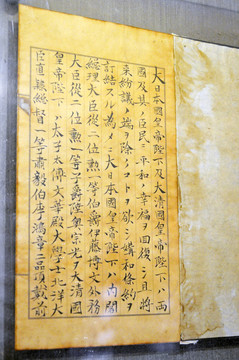 大日本國皇帝陛下及大清國皇帝陛下ハ兩
國及其ノ臣民ニ平和ノ幸福ヲ回復シ且將
來紛議ノ端ヲ除クコトヲ欲シ媾和條約ヲ
訂結スル為メニ大日本國皇帝陛下ハ内閣
總理大臣從二位勲一等伯爵伊藤博文外務
大臣從二位勲一等子爵陸奥宗光ヲ大清國
皇帝陛下ハ太子太傅文華殿大學士北洋大
臣直隷總督一等肅毅伯李鴻章二品頂戴前